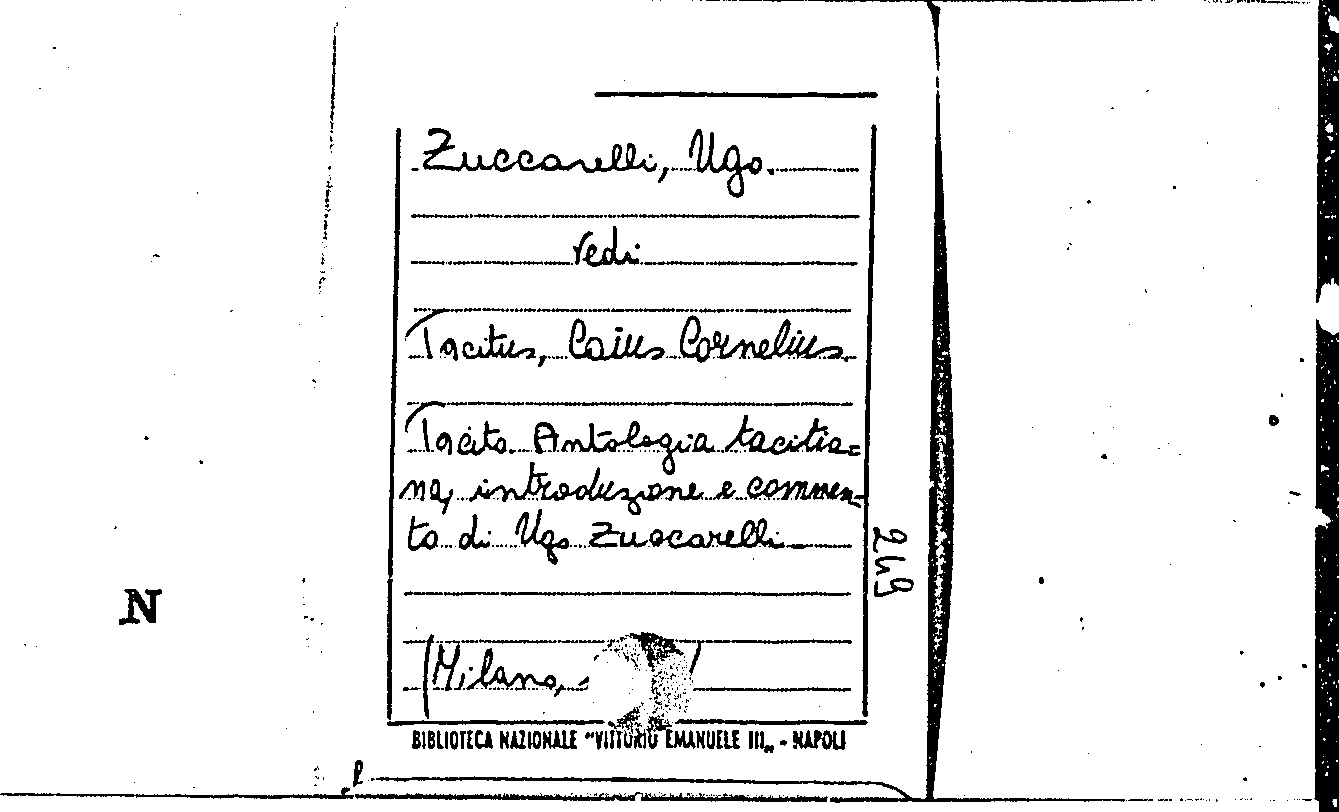 Zuccarelli, Ugo.
Vedi
Tacitus, Caius Cornelius.
Tacito. Antologia tacitia=
na, introduzione e commen-
to di Ugo Zuccarelli.
(Milano,
249
BIBLIOTECA NAZIONALE "VITTORIO EMANUELE III„ - NAPOLI
N